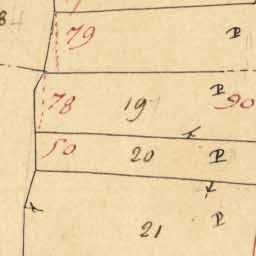 79 P
P
78 19 90
50 20 P
21 P